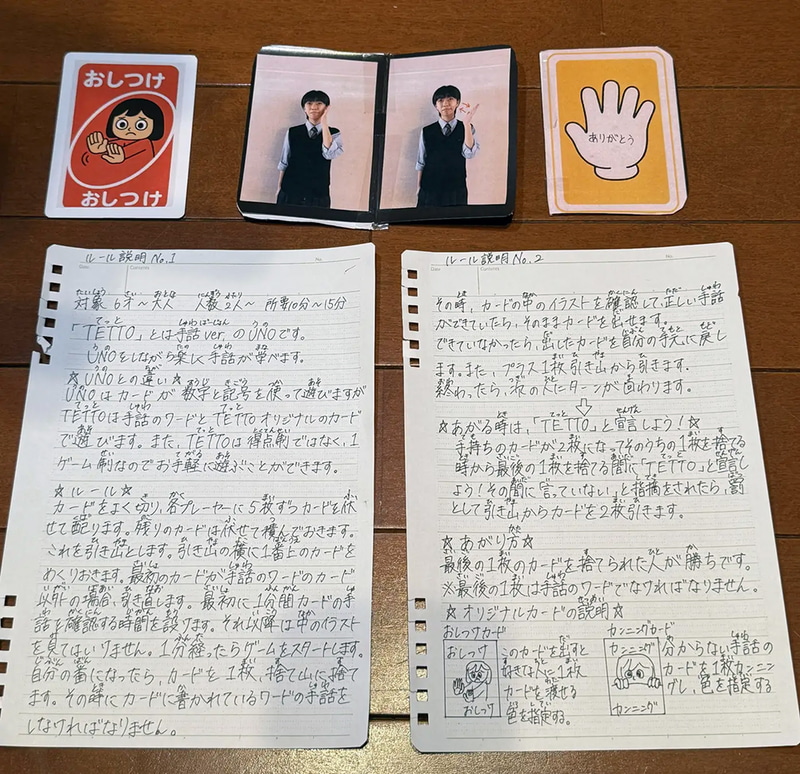 おしつけ
おしつけ
ありがとう
ルール説明 No.1
対象 6才～大人 人数 2人～ 所要10分～15分
「TETTO」とは手話ver.のUNOです。
UNOをしながら楽しく手話が学べます。
☆UNOとの違い☆
UNOはカードが数字と記号を使って遊びますが
TETTOは手話のワードとTETTOオリジナルのカード
で遊びます。また、TETTOは得点制ではなく、1
ゲーム制なのでお手軽に遊ぶことができます。
☆ルール☆
カードをよく切り、各プレーヤーに5枚ずつカードを伏
せて配ります。残りのカードは伏せて積んでおきます。
これを引き出とします。引き出の横に1番上のカードを
めくりおきます。最初のカードが手話のワードのカード
以外の場合、引き直します。最初に1分間カードの手
話を確認する時間を設けます。それ以降は中のイラスト
を見てはいけません。1分経ったらゲームをスタートします。
自分の番になったら、カードを1枚、捨て山に捨て
ます。その時にカードに書かれているワードの手話を
しなければなりません。
ルール説明 No.2
その時、カードの中のイラストを確認して、正しい手話
ができていたら、そのままカードを出せます。
できていなかったら、出したカードを自分の手元に戻し
ます。また、プラス1枚引き山から引きます。
終わったら、次の人にターンが回わります。
☆あがる時は、「TETTO」と宣言しよう!☆
手持ちのカードが2枚になってそのうちの1枚を捨てる
時から最後の1枚を捨てる間に「TETTO」と宣言し
よう!その間に言っていない、と指摘をされたら、罰
として引き山からカードを2枚引きます。
☆あがり方☆
最後の1枚のカードを捨てられた人が勝ちです。
※最後の1枚は手話のワードでなければなりません。
☆オリジナルカードの説明☆
おしつけカード
おしつけ
おしつけ
このカードを出すと
好きな人に1枚
カードを渡せる
色を指定する。
カンニングカード
カンニング
カンニング
分からない手話の
カードを1枚カンニン
グし、色を指定する